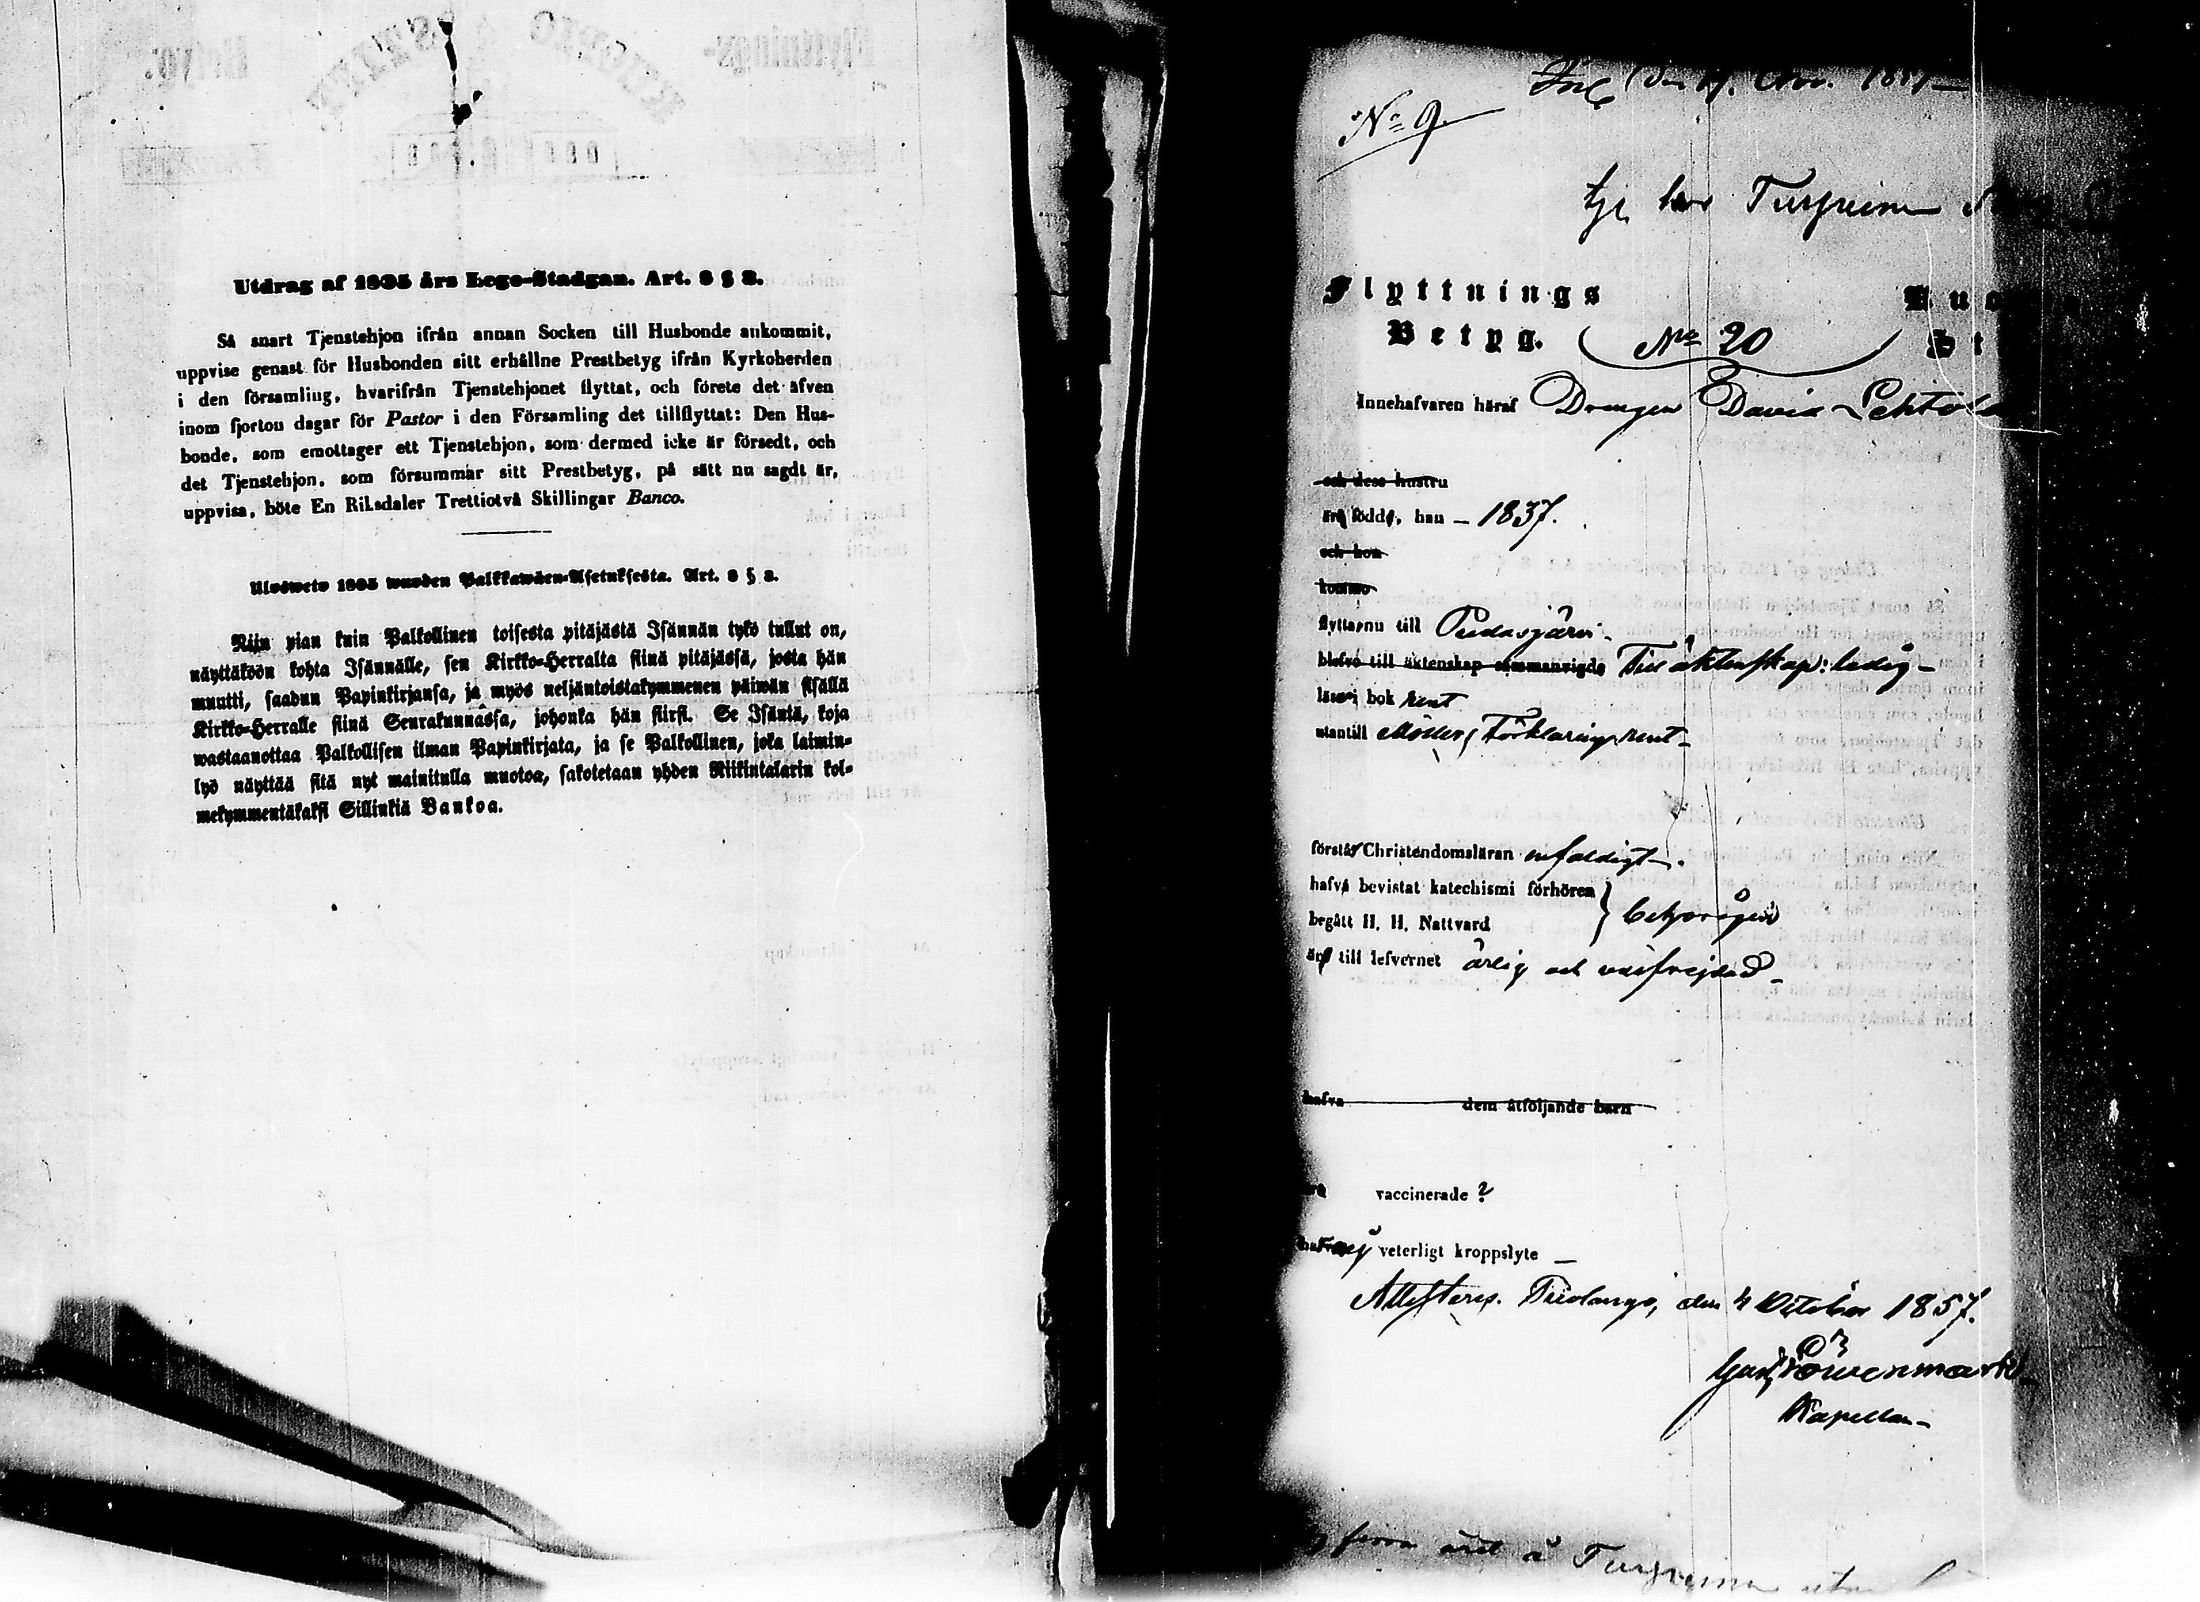 Utdrag af 1805 års Lego-Stadgan. Art. 8 § 2.
Så snart Tjenstehjon ifrån annan Socken till Husbonde ankommit,
uppvise genast för Husbonden sitt erhållne Prestbetyg ifrån Kyrkoherden
i den församling, hvarifrån Tjenstehjonet flyttat, och förete det äfven
inom fjorton dagar för Pastor i den Församling det tillflyttat: Den Hus-
bonde, som emottager ett Tjenstehjon, som dermed icke är försedt, och
det Tjenstehjon, som försummar sitt Prestbetyg, på sätt nu sagdt är,
uppvisa, böte En Riksdaler Trettiotvå Skillingar Banco.
Ulosweto 1805 wuoden Palkkawäen-Asetuksesta. Art. 8 § 2.
Niin pian kuin Palkollinen toisesta pitäjästä Isännän tykö tullut on,
näyttäköön kohta Isännälle, sen Kirkko-Herralta siinä pitäjässä, josta hän
muutti, saadun Papinkirjansa, ja myös neljäntoistakymmenen päiwän sisällä
Kirkko-Herralle siinä Seurakunnassa, johonka hän siirsi. Se Isäntä, koja
wastaanottaa Palkollisen ilman Papinkirjata, ja se Palkollinen, joka laimin-
lyö näyttää sitä nyt mainitulla muotoa, sakotetaan yhden Riikintalarin kol-
mekymmentäkaksi Sillinkiä Bankoa.
N:o 9.
tje hos Turpeinen
Flyttnings
Betyg. N:o 20
Innehafvaren häraf Drängen David Lehtola
och dess hustru
äro födde, han – 1837.
och hon
komme
flytta nu till Pudasjärvi –
blefvo till äktenskap sammanvigde Till äktenskap: ledig –
läsa i bok rent
utantill Möllers Förklaring rent –
förstår Christendomsläran enfaldigt –.
hafva bevistat katechismi förhören
begått H. H. Nattvard } behörigen
äro till lefvernet ärlig och välfrejdad –
hafva dem åtföljande barn
vaccinerade ?
hafva ej veterligt kroppslyte –
Attesteras. Tuolango, den 4 October 1857.
Löwenmark
Kapellan –